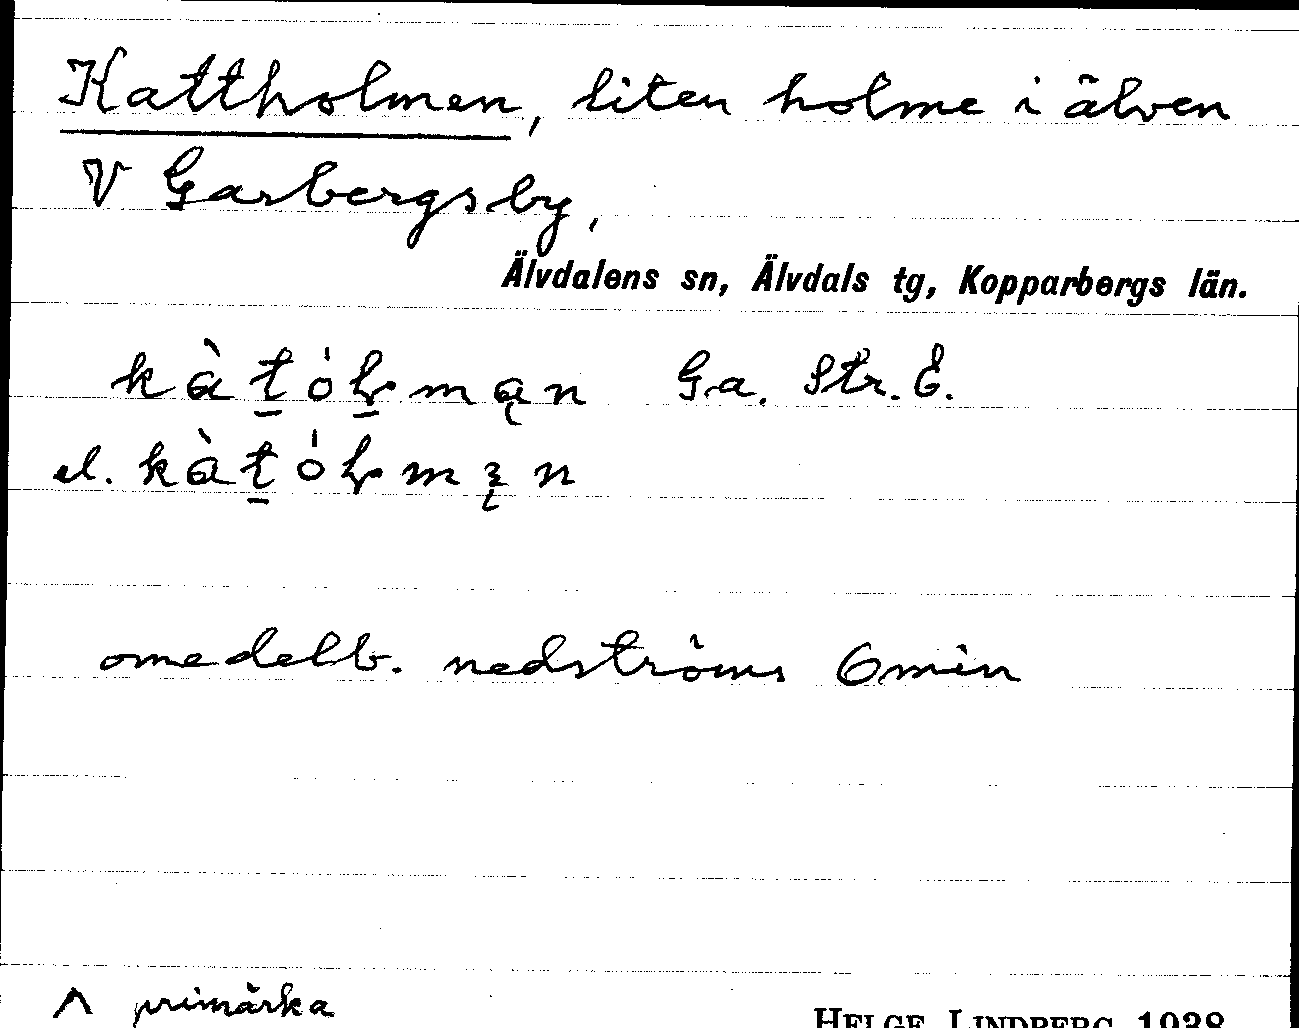 Kattholmen, liten holme i älven
V Garbergsby,
Älvdalens sn, Älvdals tg, Kopparbergs län.
kàt̠óɫ̠mąn Ga. Str. E.
el. kàt̠óɫmᶎn
omedelb. nedströms Omin
Λ primärka
HELGE LINDBERG 1938